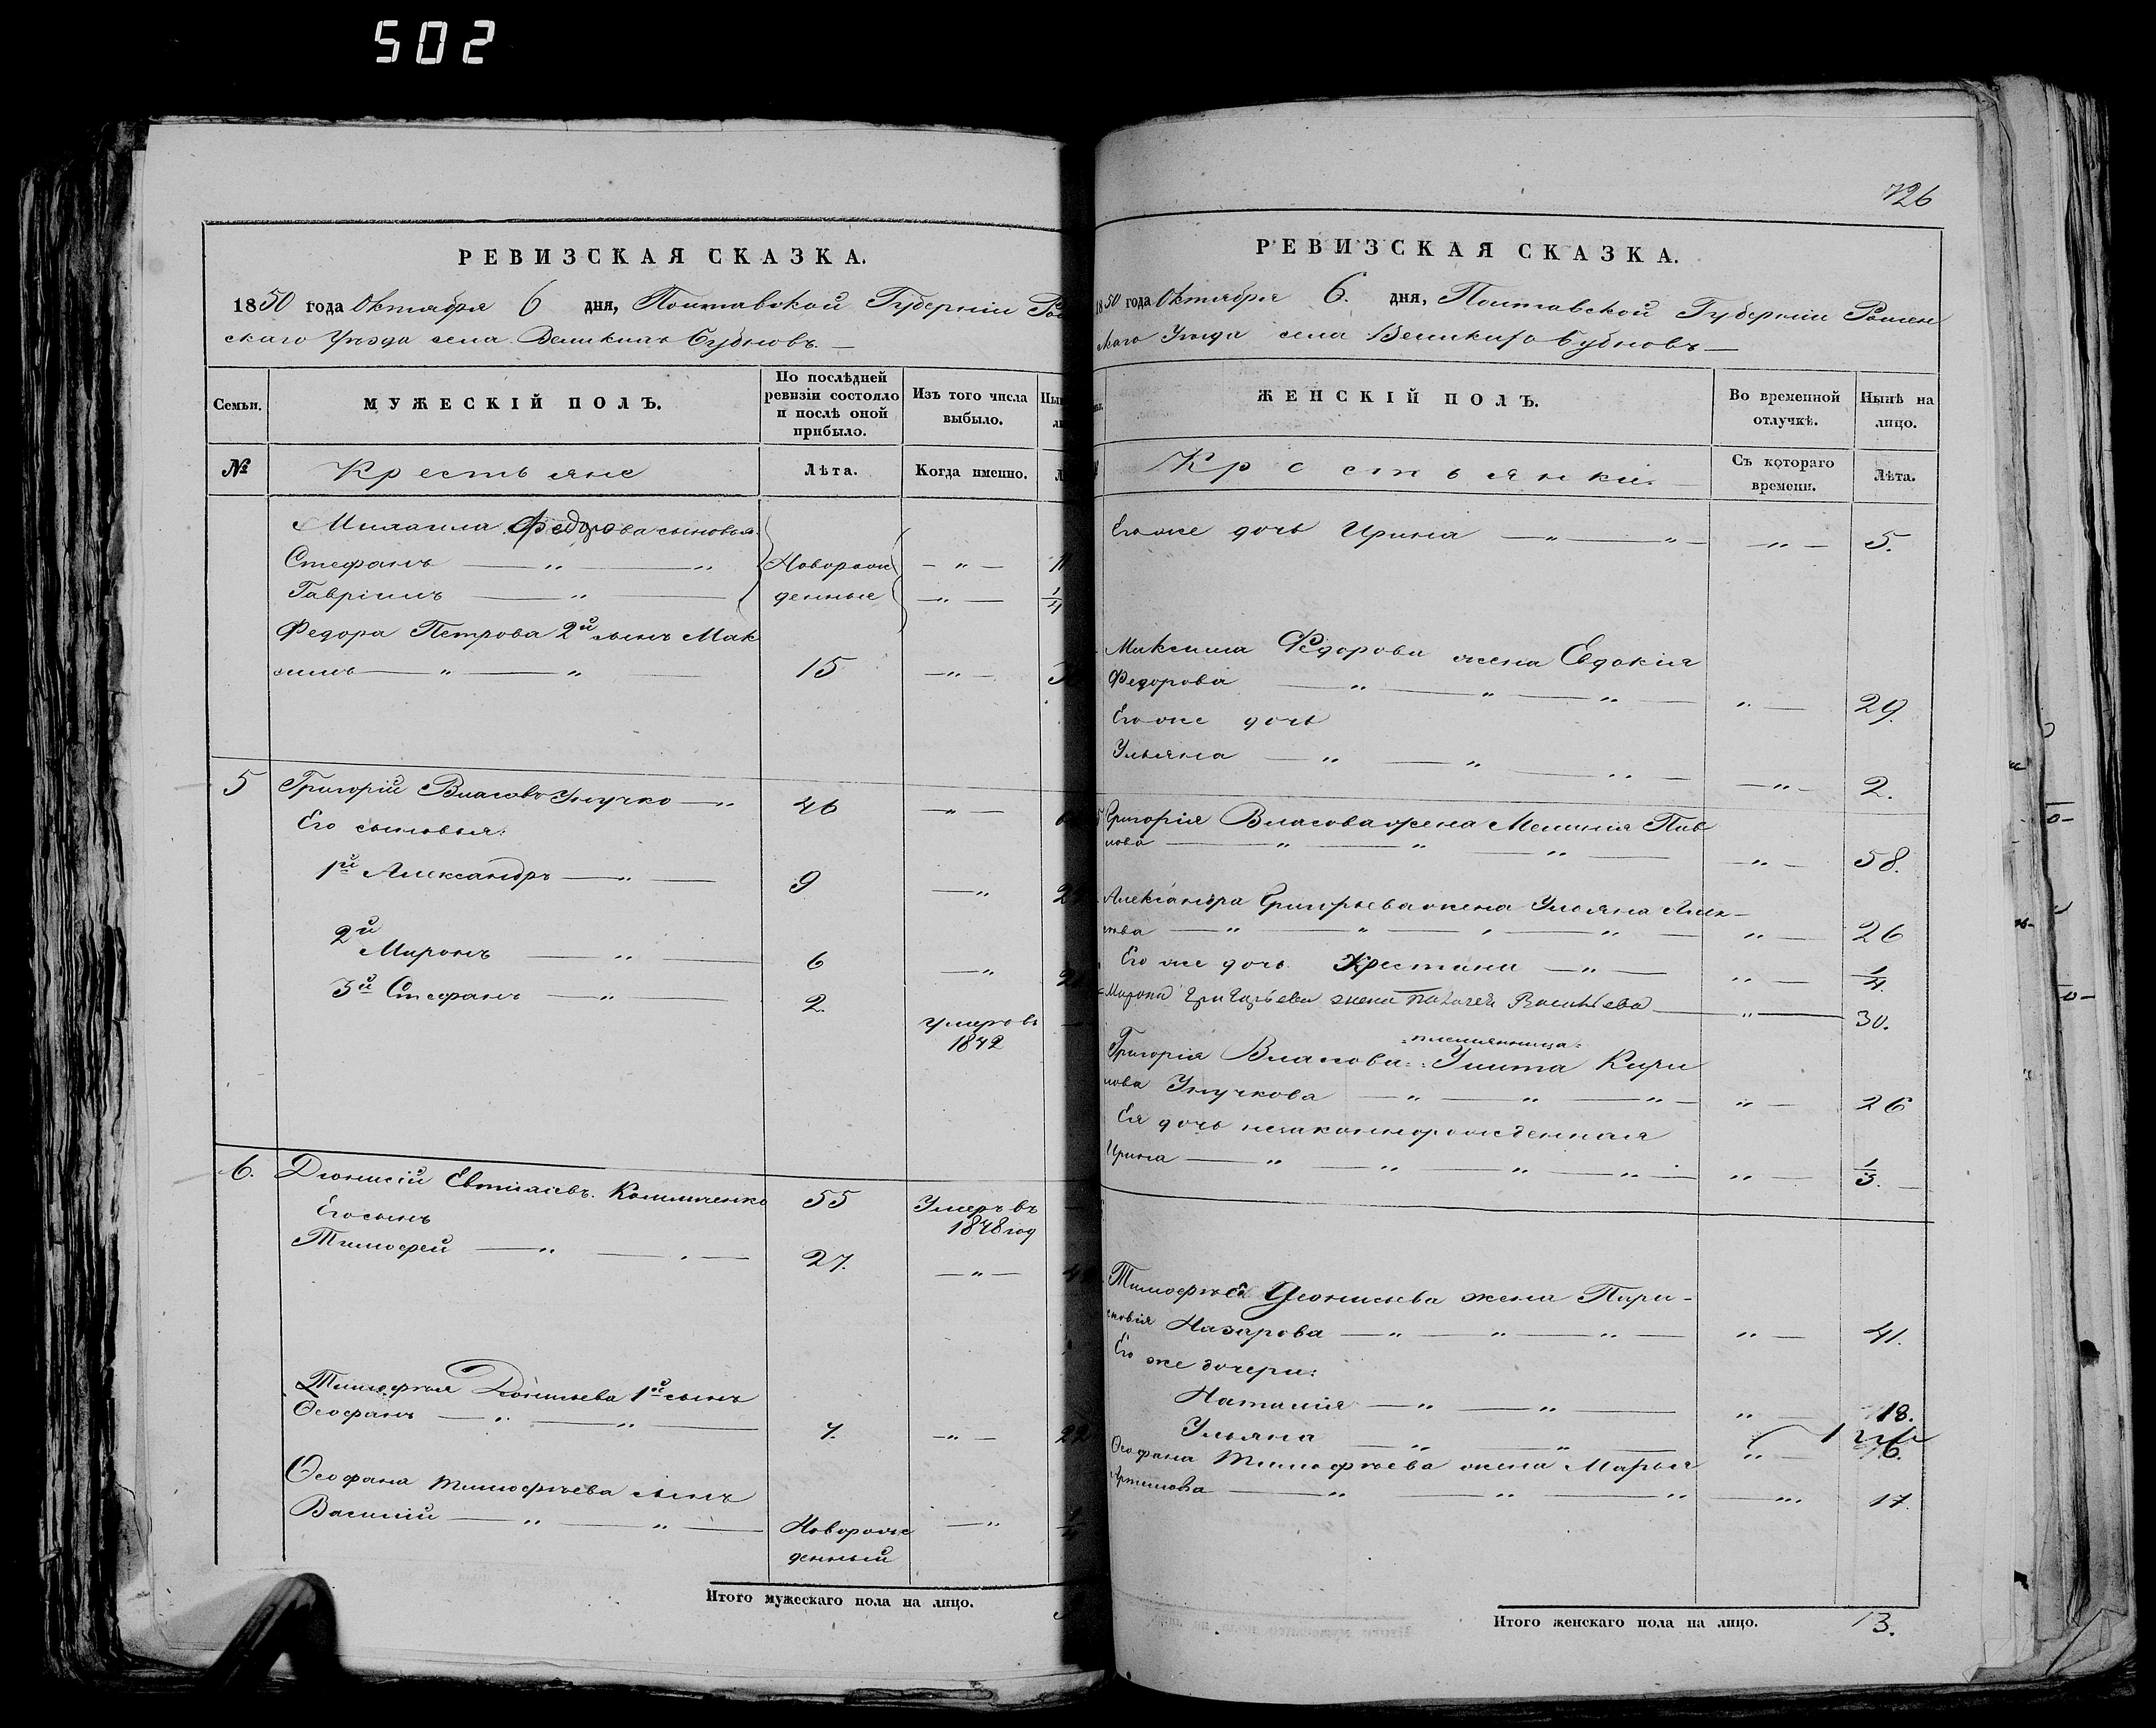 502
РЕВИЗСКАЯ СКАЗКА.
1850 года Октября 6 дня, Полтавской Губерніи
скаго Уѣзда села Великихъ Бубновъ
Семьи.
МУЖЕСКІЙ ПОЛЪ.
По послѣдней
ревизіи состояло
и послѣ оной
прибыло.
Изъ того числа
выбыло.
№
Крестьяне
Лѣта.
Когда именно.
Михаила Федорова сыновья
Стефанъ Новорож
Гавріилъ денные 1/4
Федора Петрова 2й сынъ Мак
симъ 15
5 Григорій Власовъ Унучко 46
Его сыновья:
1й Александръ 9
2й
Миронъ 6
3й Стефанъ 2.
умеръ въ
1842
6. Діонисій Евтихіевъ 55 Умеръ въ
Его сынъ 1848 год
Тимофей 27.
Тимофея Діонисьева 1й сынъ
Ѳеофанъ 7. 22
Ѳеофана Тимофѣева сынъ
Василій Новорож
денный
Итого мужескаго пола на лицо.
726
РЕВИЗСКАЯ СКАЗКА.
1850 года Октября 6. дня, Полтавской Губерніи Ромен
скаго Уѣзда села Великихъ Бубновъ
ЖЕНСКІЙ ПОЛЪ.
Во временной
отлучкѣ.
Нынѣ на
лицо.
Крестьянки
Съ котораго
времени.
Лѣта.
Его же дочь Ирина 5.
Максима Федорова жена Евдокія
Федорова 29.
Его же дочь
Ульяна 2.
Григорія Власова жена Меланія Пав
лова 58.
Александра Григорьева жена Ульяна
26
Его же дочь Крестина 1/4.
Мирона Григорьева жена Пелагея Васильева 30.
племянница
Григорія Власова Улита Кири
лова Унучкова 26
Ея дочь незаконнорожденная
Ирина 1/3.
Тимофѣя Деонисьева жена Пара-
сковія Назарова 41.
Его же дочери:
Наталія 18.
Ульяна
Ѳеофана Тимофѣева жена Марья
Артемова 17.
Итого женскаго пола на лицо. 13.